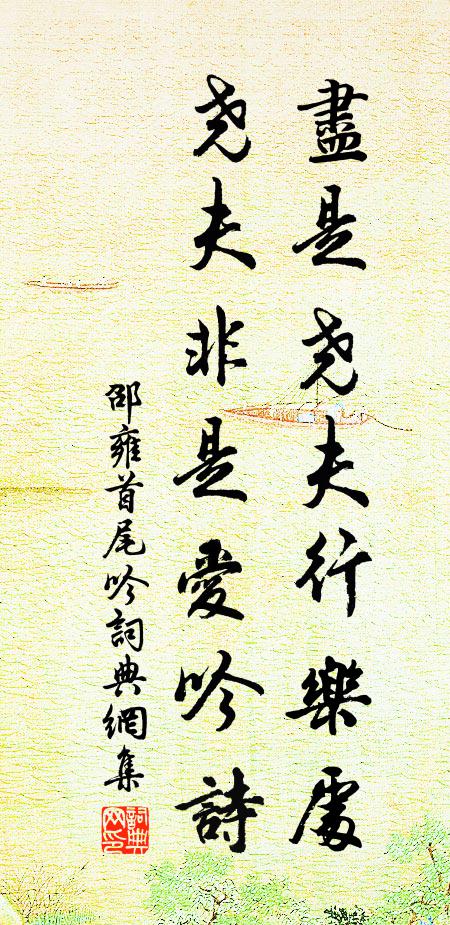 盡是尧夫行樂處
尧夫非是愛吟詩
邵雍首尾吟詞典網集
詞典
网印